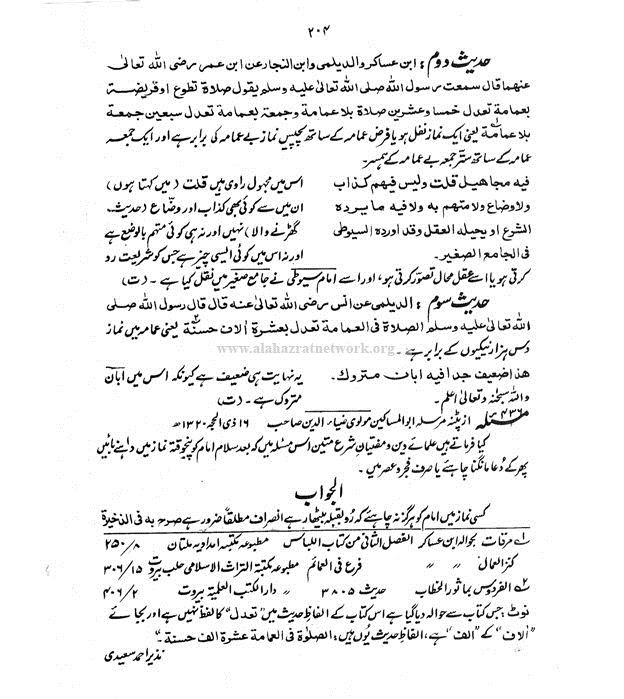 ۲۰۴
حدیث دوم: ابن عساکر والدیلمی وابن النجار عن ابن عمر رضی اللہ تعالیٰ
عنہما قال سمعت رسول اللہ صلی اللہ تعالیٰ علیہ وسلم یقول صلاۃ تطوع او فریضۃ
بعمامۃ تعدل خمسا وعشرین صلاۃ بلا عمامۃ وجمعۃ بعمامۃ تعدل سبعین جمعۃ
بلا عمامۃ یعنی ایک نماز نفل ہو یا فرض عمامہ کے ساتھ پچیس نماز بے عمامہ کی برابر ہے اور ایک جمعہ
عمامہ کے ساتھ ستر جمعہ بے عمامہ کے ہمسر۔
فیہ مجاھیل قلت ولیس فیھم کذاب اس میں مجہول راوی ہیں قلت (میں کہتا ہوں)
ولا وضاع ولا متھم بہ ولا فیہ ما یردہ ان میں سے کوئی بھی کذاب اور وضاع (حدیث
الشرع او یحیلہ العقل وقد اوردہ السیوطی گھڑنے والا) نہیں اور نہ ہی کوئی متہم بالوضع ہے
فی الجامع الصغیر۔ اور نہ اس میں کوئی ایسی چیز ہے جس کو شریعت رد
کرتی ہو یا اسے عقل محال تصور کرتی ہو، اور اسے امام سیوطی نے جامع صغیر میں نقل کیا ہے۔ (ت)
حدیث سوم: الدیلمی عن انس رضی اللہ تعالیٰ عنہ قال قال رسول اللہ صلی
اللہ تعالیٰ علیہ وسلم الصلاۃ فی العمامۃ تعدل بعشرۃ الاف حسنۃ یعنی عمامہ میں نماز
دس ہزار نیکیوں کے برابر ہے۔
www.alahazratnetwork.org
ھذا ضعیف جدا فیہ ابان متروک۔ یہ نہایت ہی ضعیف ہے کیونکہ اس میں ابان
واللہ سبحٰنہ وتعالیٰ اعلم۔ متروک ہے۔ (ت)
مسئلہ ۴۳۶ از پٹنہ مرسلہ ابوالمساکین مولوی ضیاء الدین صاحب ۱۶ ذی الحجہ ۱۳۲۰ھ
کیا فرماتے ہیں علمائے دین ومفتیان شرع متین اس مسئلہ میں کہ بعد سلام امام کو پنجوقتہ نماز میں داہنے بائیں
پھر کے دُعا مانگنا چاہئے یا صرف فجر و عصر میں۔
الجواب
کسی نماز میں امام کو ہرگز نہ چاہئے کہ رُو بقبلہ بیٹھا رہے انصراف مطلقاً ضرور ہے صرح بہ فی الذخیرۃ
۱؎ مرقات بحوالہ ابن عساکر الفصل الثانی من کتاب اللباس مطبوعہ مکتبہ امدادیہ ملتان ۸/۲۵۰
کنز العمال ״ ״ فرع فی العمائم مطبوعہ مکتبۃ التراث الاسلامی حلب بیروت ۱۵/۳۰۶
۲؎ الفردوس بماثور الخطاب حدیث ۳۸۰۵ ״ دار الکتب العلمیۃ بیروت ۲/۴۰۶
نوٹ: جس کتاب سے حوالہ دیا گیا ہے اس کتاب کے الفاظ حدیث میں "تعدل" کا لفظ نہیں ہے اور بجائے
"اٰلاف" کے "الف" ہے، الفاظ حدیث یوں ہیں: الصلوٰۃ فی العمامۃ عشرۃ الف حسنۃ۔"
نذیر احمد سعیدی